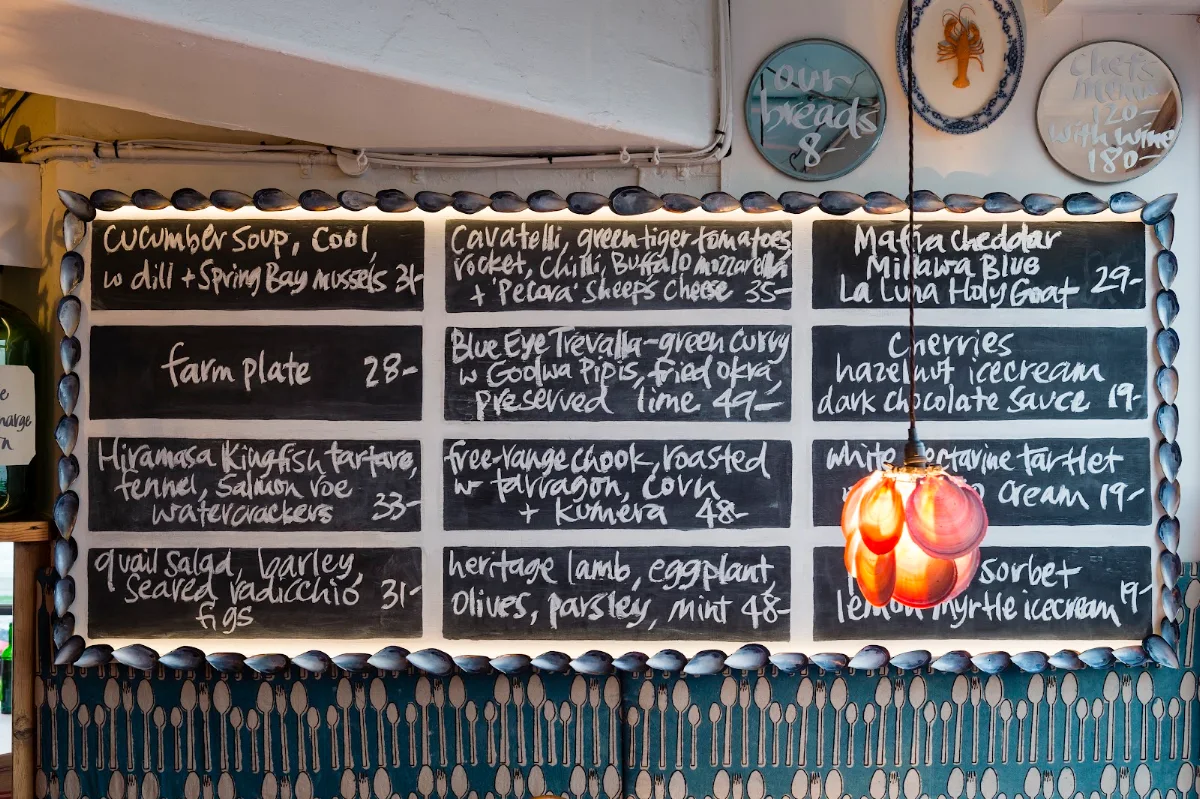 our
breads
8-
chefs
menu
120-
with wine
180-
cucumber soup, cool
w dill + Spring Bay mussels 31-
farm plate 28-
Hiramasa Kingfish tartare,
fennel, salmon roe
watercrackers 33-
quail salad, barley,
seared radicchio 31-
figs
Cavatelli, green tiger tomatoes
rocket, chilli, Buffalo mozzarella
+ 'Pecora' sheeps cheese 35-
Blue Eye Trevalla - green curry
w Goolwa Pipis, fried okra,
preserved lime 49-
free-range chook, roasted
w tarragon, corn
+ kumera 48-
heritage lamb, eggplant,
olives, parsley, mint 48-
Maffra cheddar
Milawa Blue
La Luna Holy Goat 29-
cherries
hazelnut icecream
dark chocolate sauce 19-
white nectarine tartlet
cream 19-
sorbet
lemon myrtle icecream 19-